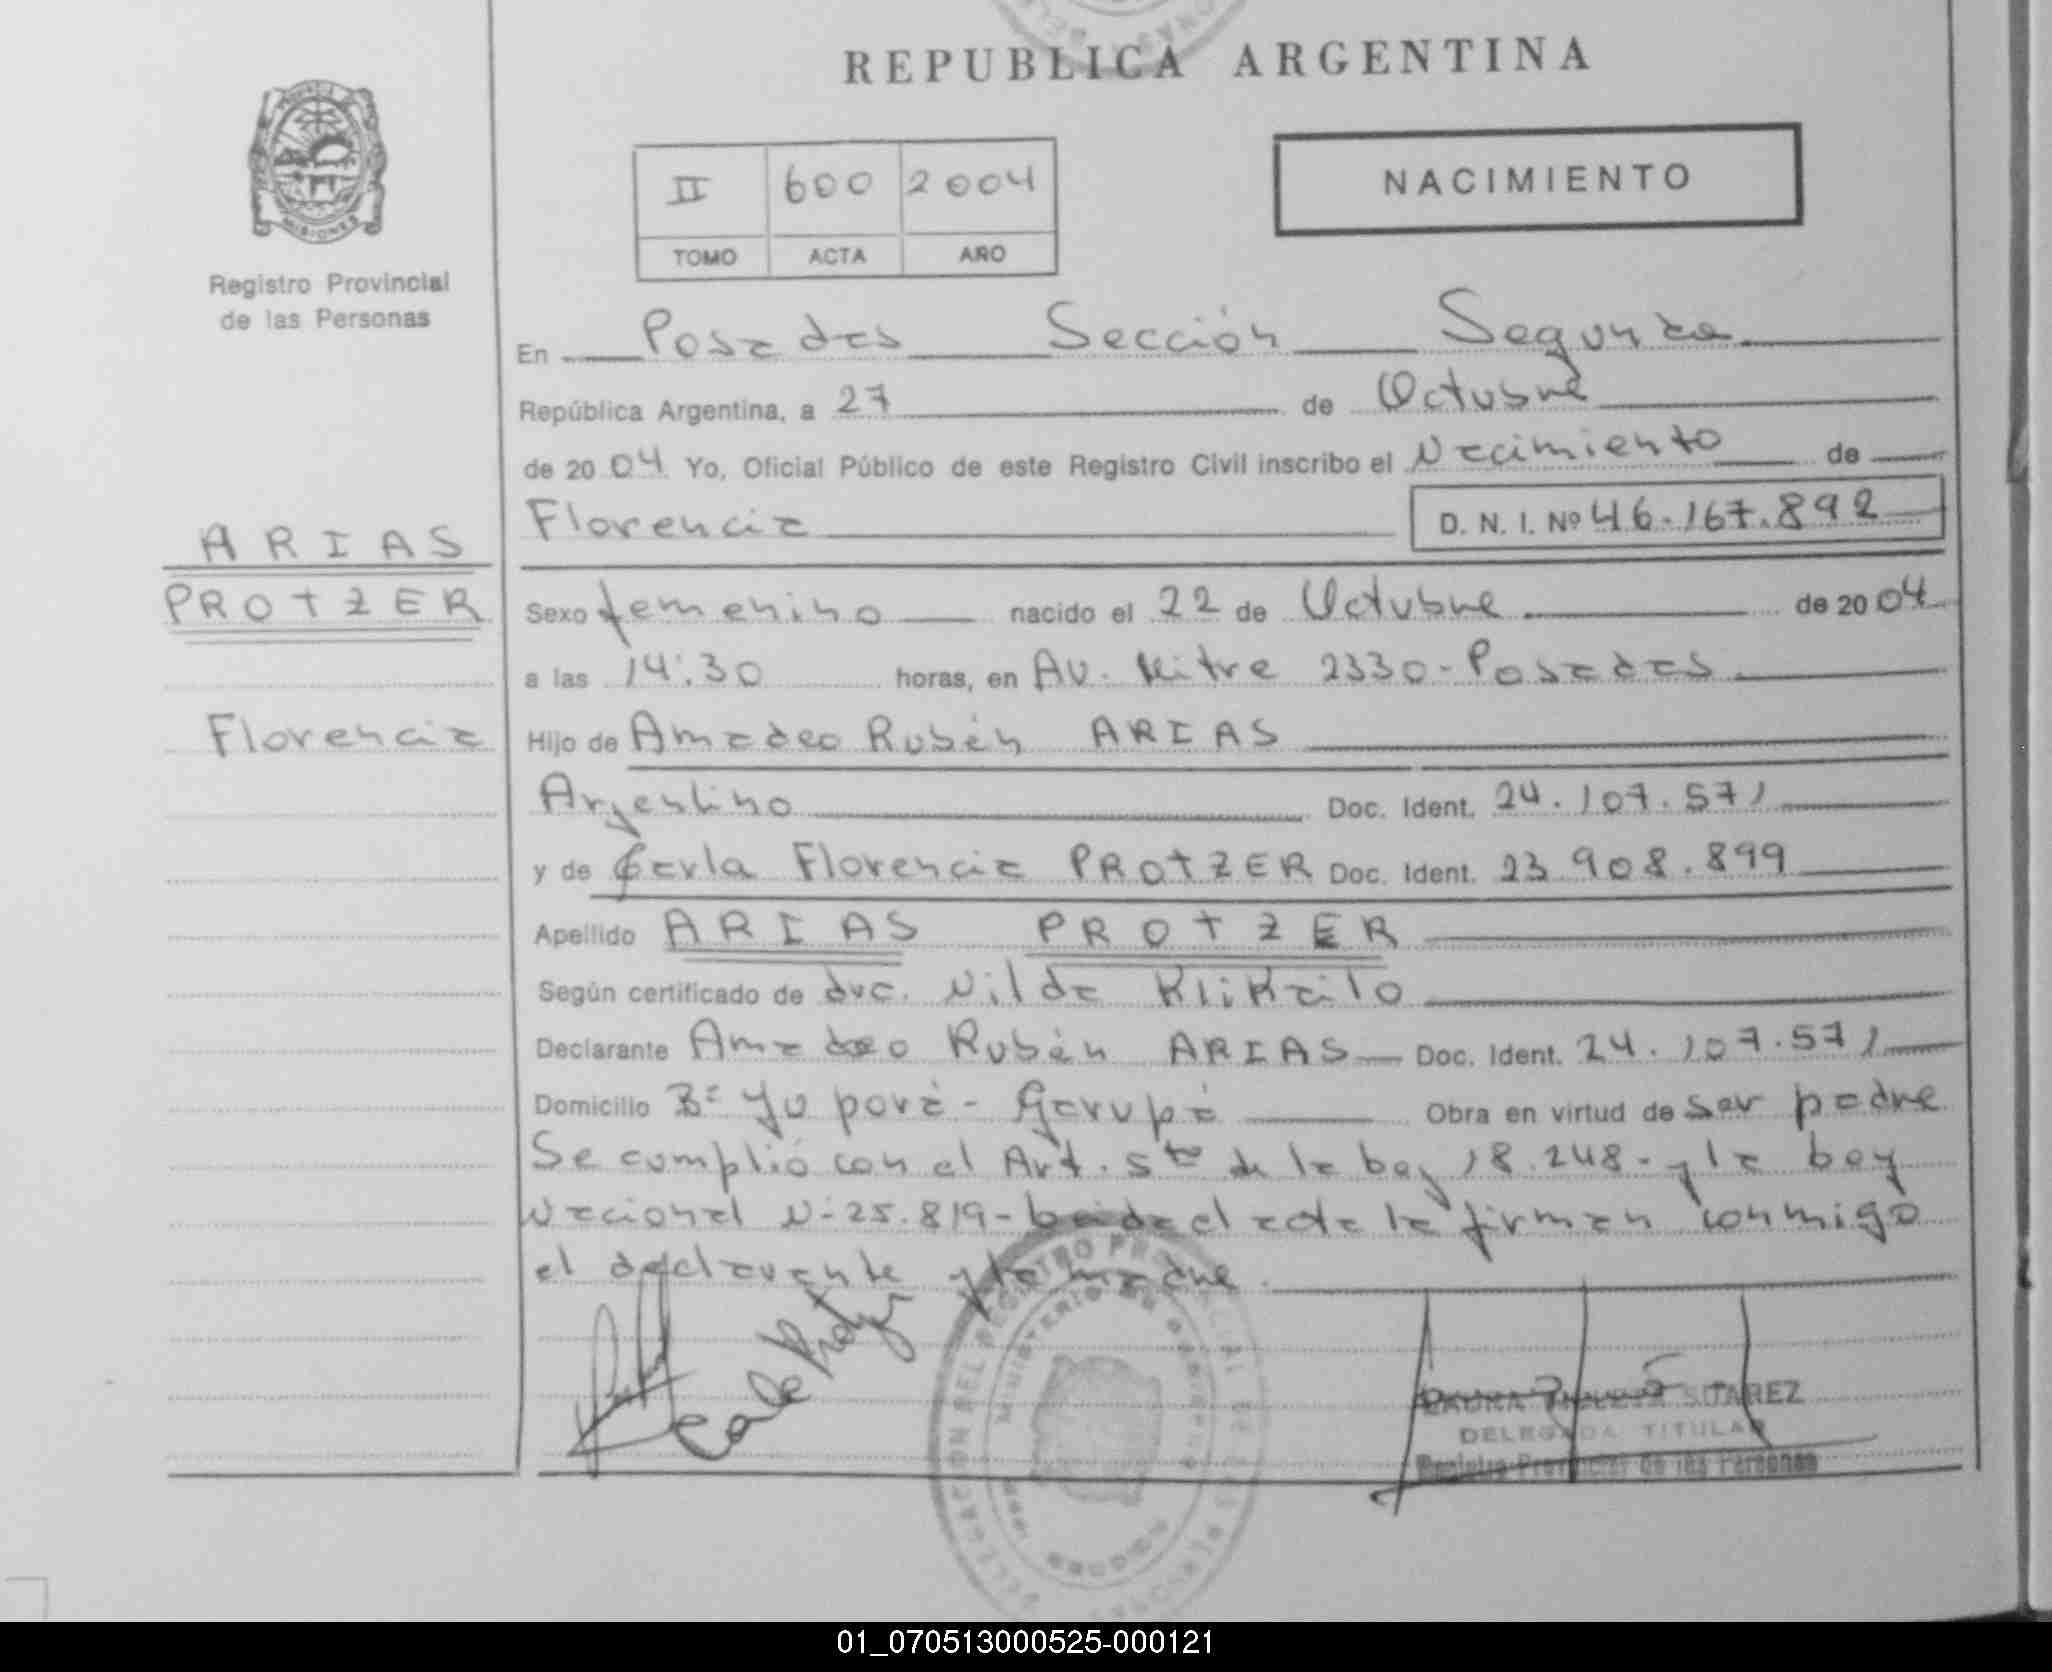 REPUBLICA ARGENTINA
NACIMIENTO
II 600 2004
TOMO ACTA AÑO
MISIONES
Registro Provincial
de las Personas
En Posadas Sección Segunda
República Argentina, a 27 de Octubre
de 2004 Yo, Oficial Público de este Registro Civil inscribo el Nacimiento de
Florencia D. N. I. Nº 46.167.892
ARIAS
PROTZER
Florencia
Sexo femenino nacido el 22 de Octubre de 2004
a las 14:30 horas, en Av. Mitre 2330-Posadas
Hijo de Amadeo Rubén ARIAS
Argentino Doc. Ident. 24.107.571
y de Carla Florencia PROTZER Doc. Ident. 23.908.899
Apellido ARIAS PROTZER
Según certificado de doc. Nilda
Declarante Amadeo Rubén ARIAS Doc. Ident. 24.107.571
Domicilio Bº Yu porá - Garupá Obra en virtud de ser padre
Se cumplió con el Art. 5to de la Ley 18.248- y la Ley
Nacional Nº 25.819- Leida el acta la firman conmigo
el declarante y la madre.
SUAREZ
DELEGADA TITULAR
Registro Provincial de las Personas
01_070513000525-000121